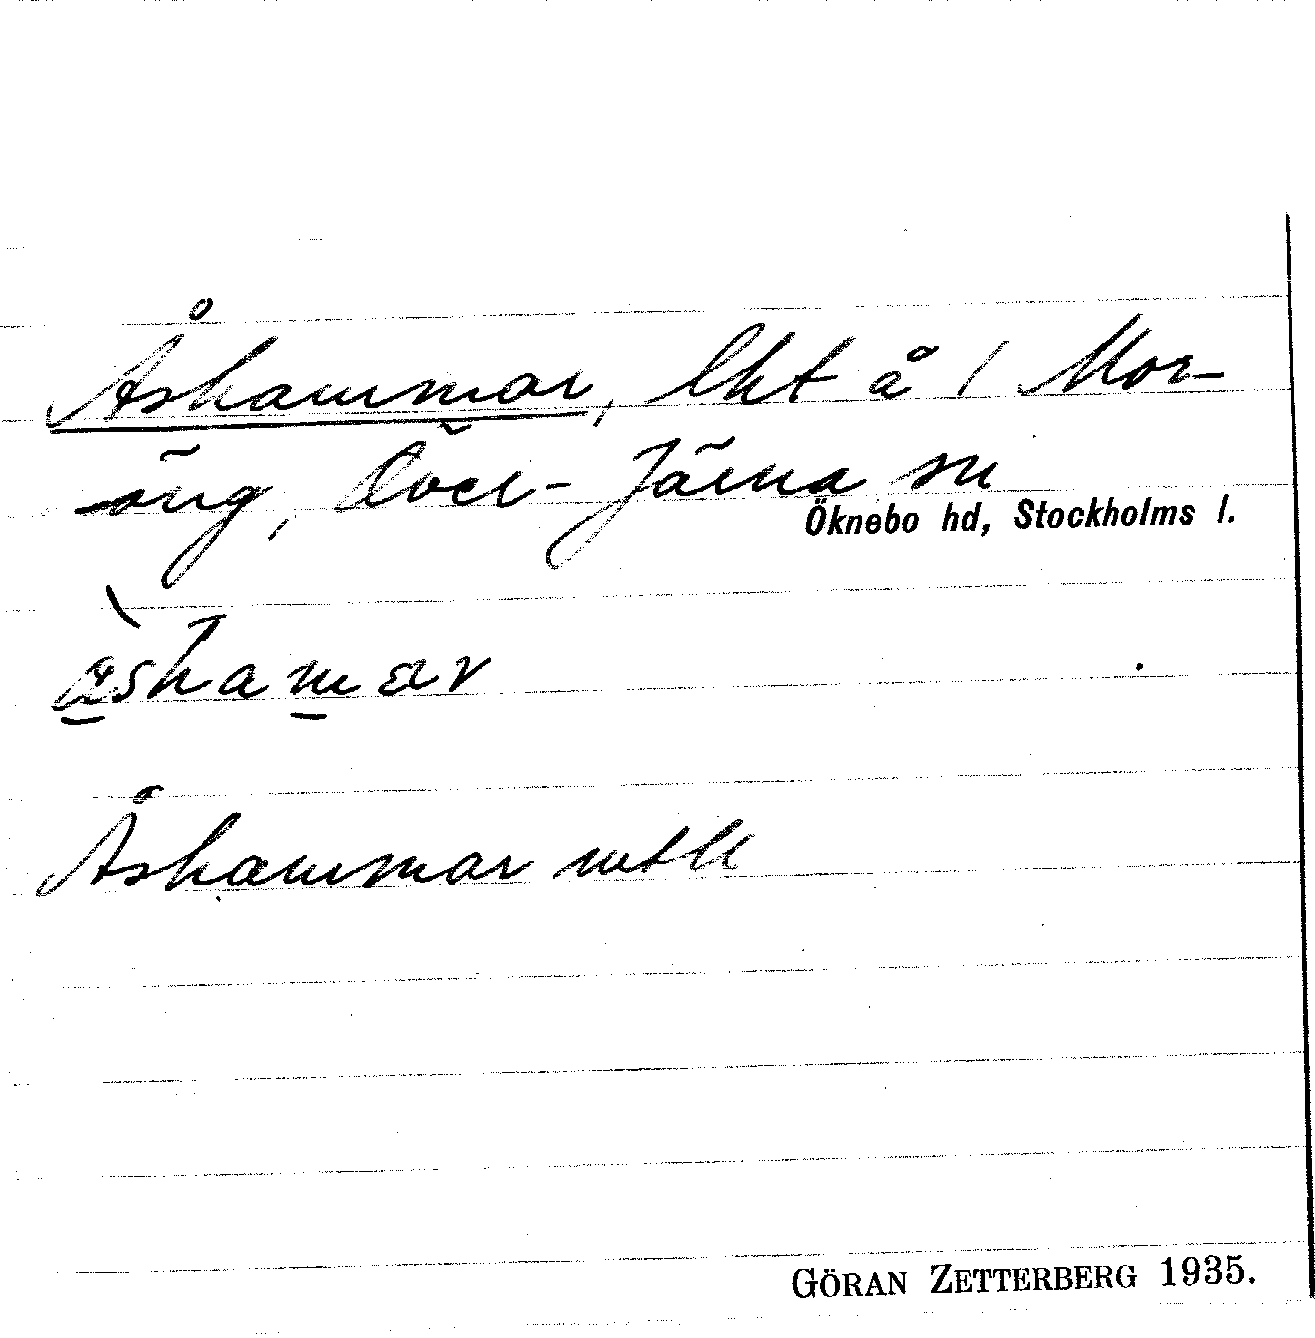 Åshammar, lht å 1 Mor-
äng, Över-Järna sn
Öknebo hd, Stockholms l.
Åshammar mtll
GÖRAN ZETTERBERG 1935.